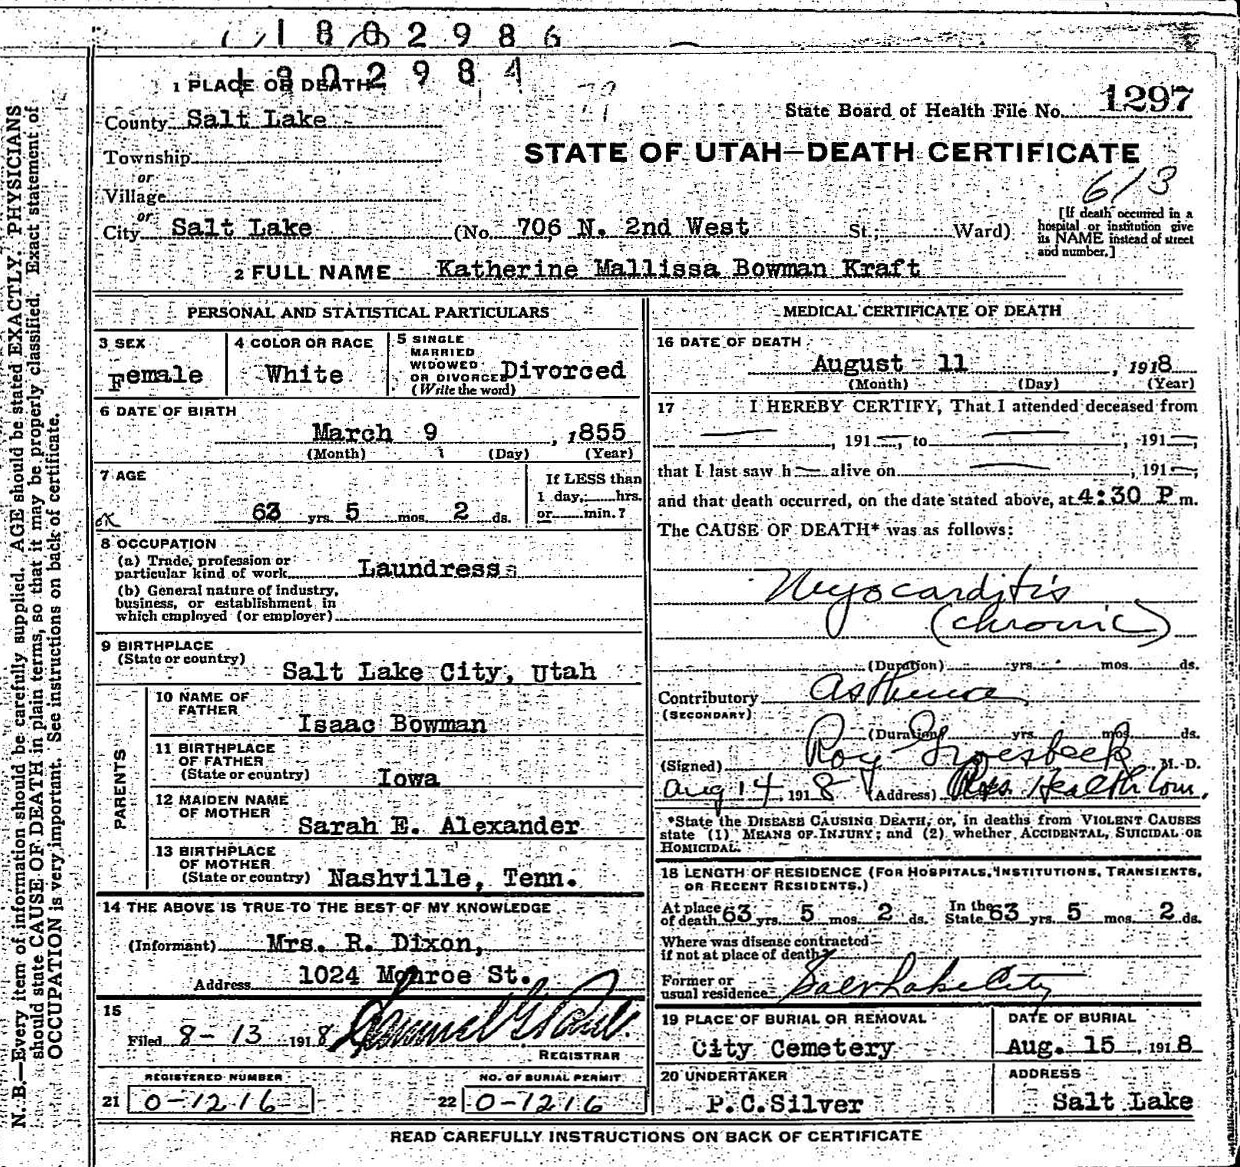 1802986
1902984
1 PLACE OF DEATH
State Board of Health File No. 1297
County Salt Lake
STATE OF UTAH—DEATH CERTIFICATE
Township
or
Village
613
or
City Salt Lake (No. 706 N. 2nd West St.; Ward)
[If death occurred in a
hospital or institution give
its NAME instead of street
and number.]
2 FULL NAME Katherine Mallissa Bowman Kraft
PERSONAL AND STATISTICAL PARTICULARS
3 SEX
Female
4 COLOR OR RACE
White
5 SINGLE
MARRIED
WIDOWED
OR DIVORCED Divorced
(Write the word)
6 DATE OF BIRTH
March 9, 1855
(Month) (Day) (Year)
7 AGE
If LESS than
1 day, hrs.
or min.?
ok
63 yrs. 5 mos. 2 ds.
8 OCCUPATION
(a) Trade, profession or
particular kind of work Laundress
(b) General nature of industry,
business, or establishment in
which employed (or employer)
9 BIRTHPLACE
(State or country)
Salt Lake City, Utah
PARENTS
10 NAME OF
FATHER
Isaac Bowman
11 BIRTHPLACE
OF FATHER
(State or country) Iowa
12 MAIDEN NAME
OF MOTHER
Sarah E. Alexander
13 BIRTHPLACE
OF MOTHER
(State or country) Nashville, Tenn.
14 THE ABOVE IS TRUE TO THE BEST OF MY KNOWLEDGE
(Informant) Mrs. R. Dixon,
Address 1024 Monroe St.
15
Filed 8-13 1918
REGISTRAR
REGISTERED NUMBER
21 0-1216
NO. OF BURIAL PERMIT
22 0-1216
MEDICAL CERTIFICATE OF DEATH
16 DATE OF DEATH
August 11, 1918
(Month) (Day) (Year)
17 I HEREBY CERTIFY, That I attended deceased from
—, 191—, to —, 191—,
that I last saw h— alive on —, 191—,
and that death occurred, on the date stated above, at 4:30 P.m.
The CAUSE OF DEATH* was as follows:
Myocarditis
(chronic)
(Duration) yrs. mos. ds.
Contributory Asthenia
(SECONDARY)
(Duration) yrs. mos. ds.
(Signed) Roy Groesbeck M. D.
Aug 14, 1918 (Address) Health Com.
*State the DISEASE CAUSING DEATH, or, in deaths from VIOLENT CAUSES
state (1) MEANS OF INJURY; and (2) whether ACCIDENTAL, SUICIDAL OR
HOMICIDAL.
18 LENGTH OF RESIDENCE (FOR HOSPITALS, INSTITUTIONS, TRANSIENTS,
OR RECENT RESIDENTS.)
At place
of death 63 yrs. 5 mos. 2 ds.
In the
State 63 yrs. 5 mos. 2 ds.
Where was disease contracted
if not at place of death?
Former or
usual residence Salt Lake City
19 PLACE OF BURIAL OR REMOVAL
City Cemetery
DATE OF BURIAL
Aug. 15, 1918
20 UNDERTAKER
P.C.Silver
ADDRESS
Salt Lake
READ CAREFULLY INSTRUCTIONS ON BACK OF CERTIFICATE
N. B.—Every item of information should be carefully supplied. AGE should be stated EXACTLY. PHYSICIANS
should state CAUSE OF DEATH in plain terms, so that it may be properly classified. Exact statement of
OCCUPATION is very important. See instructions on back of certificate.